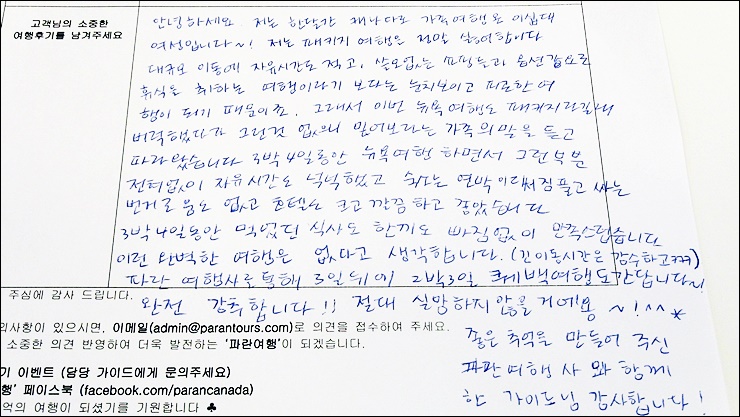 고객님의 소중한
여행후기를 남겨주세요
안녕하세요 저는 한달간 캐나다로 가족여행 온 이십대
여성입니다~! 저는 패키지 여행은 정말 싫어합니다
대규모 이동에 자유시간도 적고, 쓸모없는 쇼핑들과 옵션값으로
휴식을 취하는 여행이라기 보다는 눈치보이고 피곤한 여
행이 되기 때문이죠. 그래서 이번 뉴욕여행도 패키지라길래
버럭했다가 그런건 없으니 믿어보라는 가족의 말을 듣고
따라왔습니다 3박4일동안 뉴욕여행 하면서 그런부분
전혀없이 자유시간도 넉넉했고 숙소는 연박이라서 짐풀고 싸는
번거로움도 없고 호텔도 크고 깔끔하고 좋았습니다
3박4일동안 먹었던 식사도 한끼도 빠짐없이 만족스럽습니다
이런 완벽한 여행은 없다고 생각합니다. (긴이동시간은 감수하고ㅋㅋㅋ)
파란 여행사를통해 3일뒤에 2박3일 퀘백여행도간답니다~!
완전 강추합니다!! 절대 실망하지않을거에용 ~!^^*
좋은 추억을 만들어 주신
파란여행사와 함께
한 가이드님 감사합니다!
주심에 감사 드립니다.
의사항이 있으시면, 이메일(admin@parantours.com)로 의견을 접수하여 주세요.
소중한 의견 반영하여 더욱 발전하는 '파란여행'이 되겠습니다.
기 이벤트 (담당 가이드에게 문의주세요)
행' 페이스북 (facebook.com/parancanada)
억의 여행이 되셨기를 기원합니다 ♣